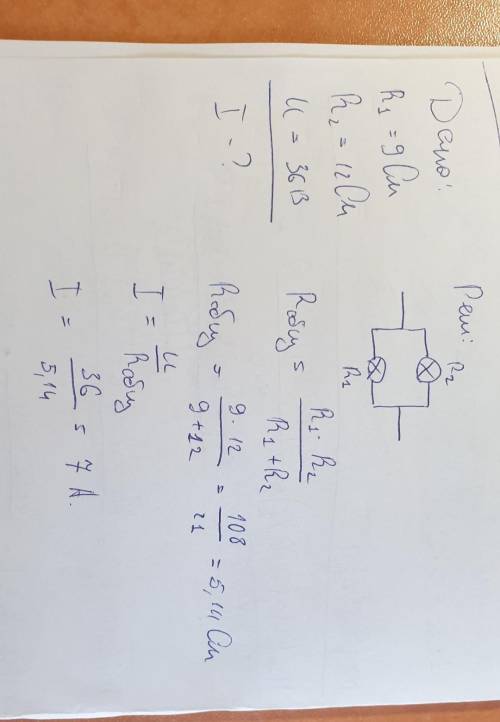 Дано:
R₁ = 9 Ом
R₂ = 12 Ом
U = 36 В
I - ?
Реш:
R₂
R₁
Rобщ = R₁ · R₂ / R₁ + R₂
Rобщ = 9 · 12 / 9 + 12 = 108 / 21 = 5,14 Ом
I = U / Rобщ
I = 36 / 5,14 = 7 А.